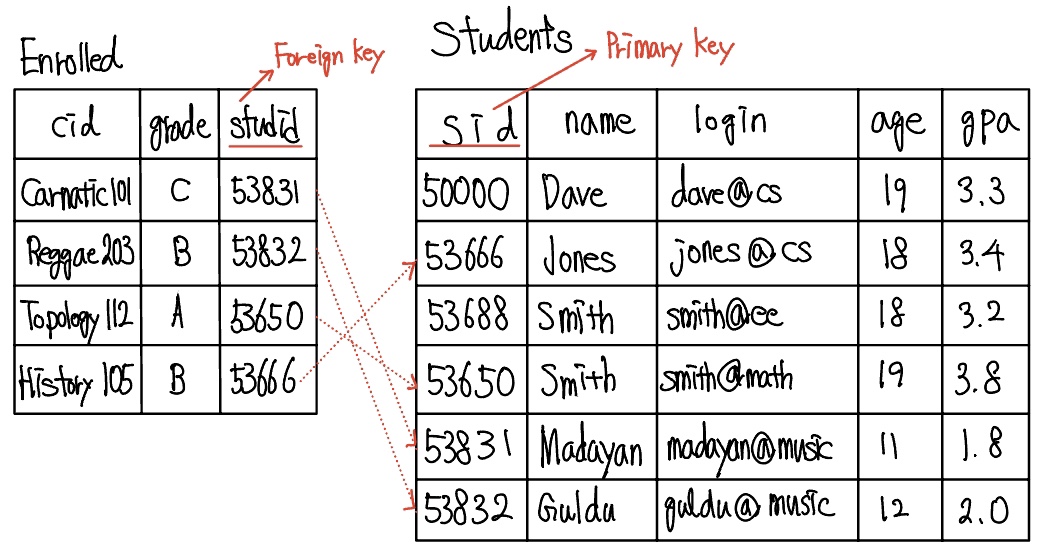 Enrolled
Foreign key
cid grade studid
Carnatic101 C 53831
Reggae203 B 53832
Topology112 A 53650
History105 B 53666
Students
Primary key
sid name login age gpa
50000 Dave dave@cs 19 3.3
53666 Jones jones@cs 18 3.4
53688 Smith smith@ee 18 3.2
53650 Smith smith@math 19 3.8
53831 Madayan madayan@music 11 1.8
53832 Guldu guldu@music 12 2.0